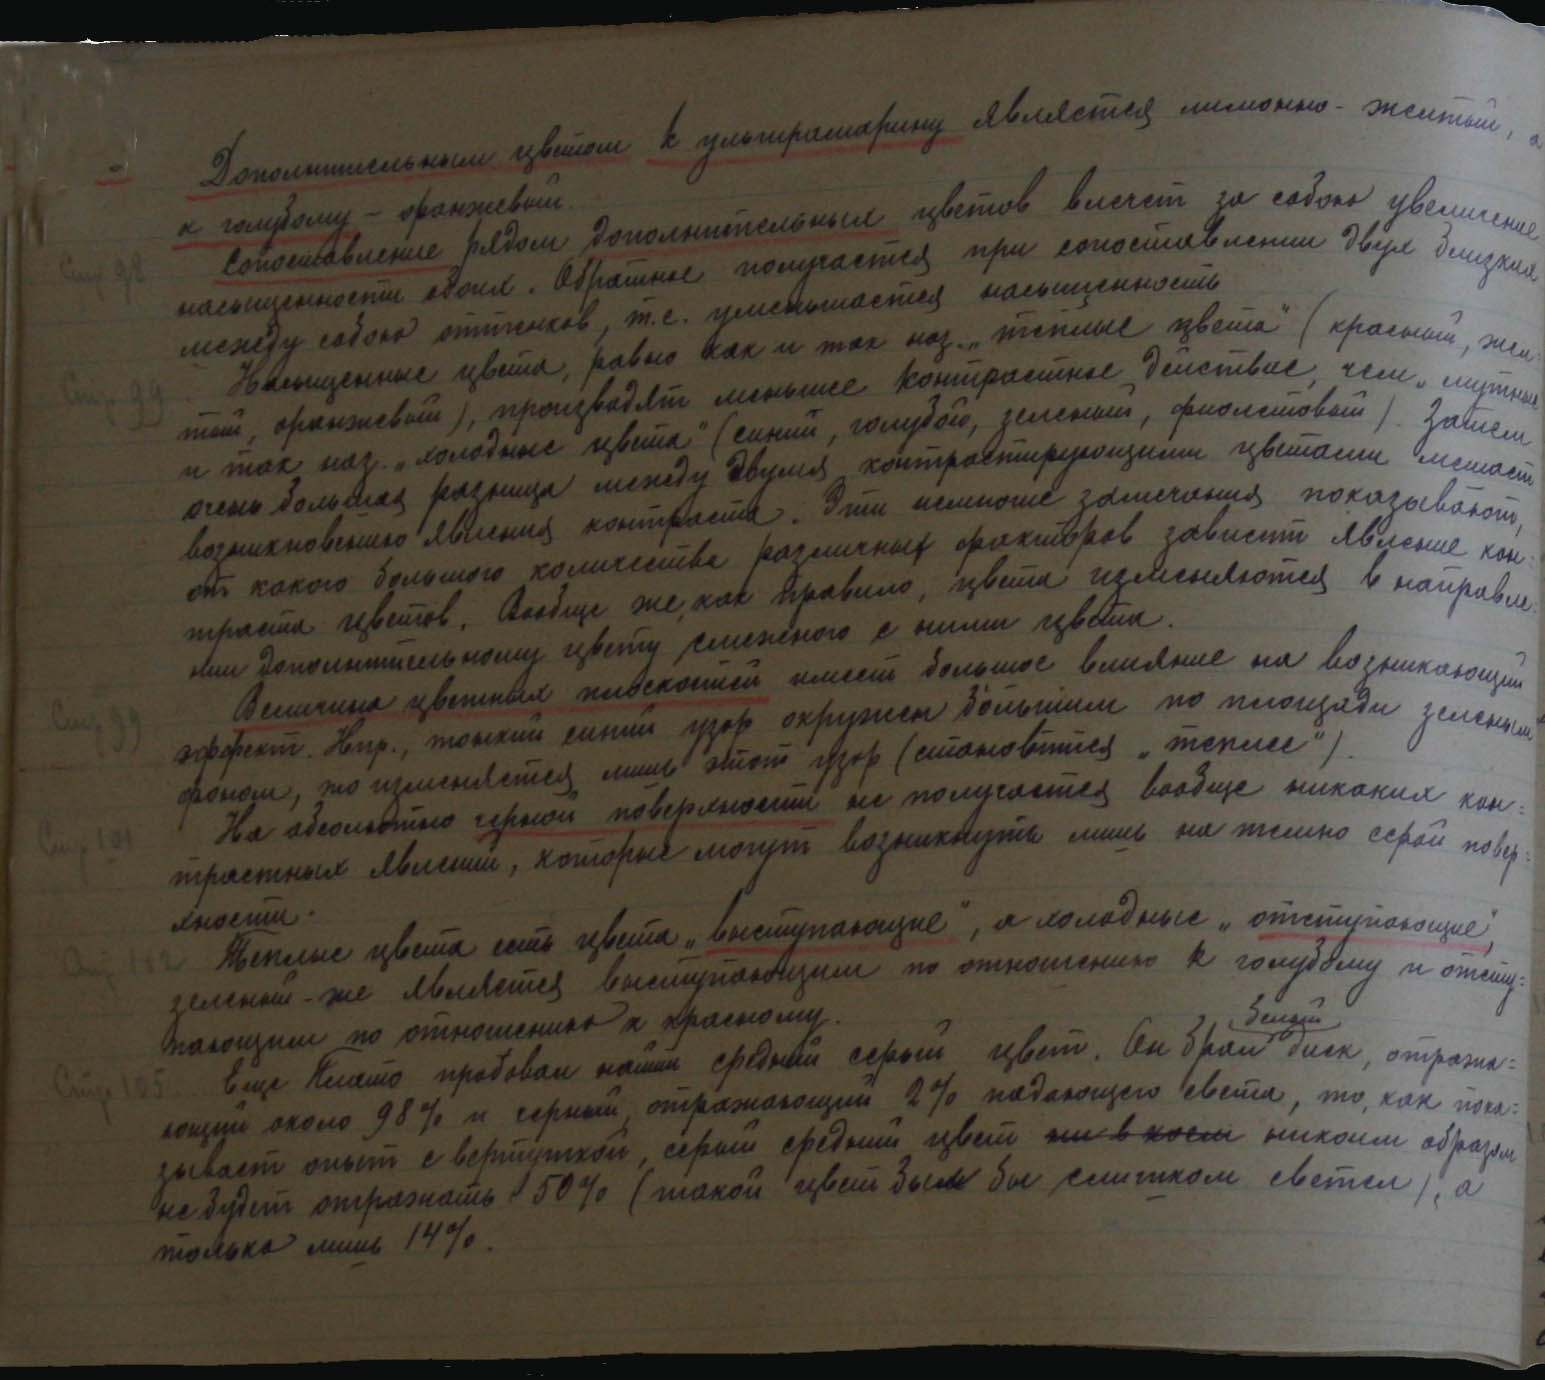 Дополнительным цветом к ультрамарину является лимонно-желтый, а
к голубому – оранжевый.
Стр 98 Сопоставление рядом дополнительных цветов влечет за собою увеличение
насыщенности обоих. Обратное получается при сопоставлении двух близких
между собою оттенков, т.е. уменьшается насыщенность
Стр 99. Насыщенные цвета, равно как и так наз. „теплые цвета" (красный, жел-
тый, оранжевый), производят меньшее контрастное действие, чем „мутные
и так наз. „холодные цвета" (синий, голубой, зеленый, фиолетовый). Затем
очень большая разница между двумя контрастирующими цветами мешает
возникновению явления контраста. Эти немногие замечания показывают,
от какого большого количества различных факторов зависит явление кон-
траста цветов. Вообще же, как правило, цвета изменяются в направле-
нии дополнительному цвету смежного с ними цвета.
Стр 99 Величина цветных плоскостей имеет большое влияние на возникающий
эффект. Нпр., тонкий синий узор окружен бо́льшим по площади зеленым
фоном, то изменяется лишь этот узор (становится „теплее").
Стр 101 На абсолютно черной поверхности не получается вообще никаких кон-
трастных явлений, которые могут возникнуть лишь на темно серой повер-
хности.
Стр 102 Теплые цвета есть цвета „выступающие", а холодные „отступающие",
зеленый-же является выступающим по отношению к голубому и отсту-
пающим по отношению к красному.
Стр 105 Еще Плато пробовал найти средний серый цвет. Он брал белый диск, отража-
ющий около 98% и черный, отражающий 2% падающего света, то, как пока-
зывает опыт с вертушкой, серый средний цвет ни в коем никоим образом
не будет отражать 50% (такой цвет был бы слишком светел), а
только лишь 14%.